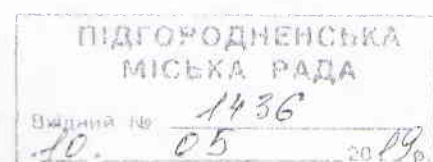 ПІДГОРОДНЕНСЬКА
МІСЬКА РАДА
Вхідний № 1436
10. 05 2019р.